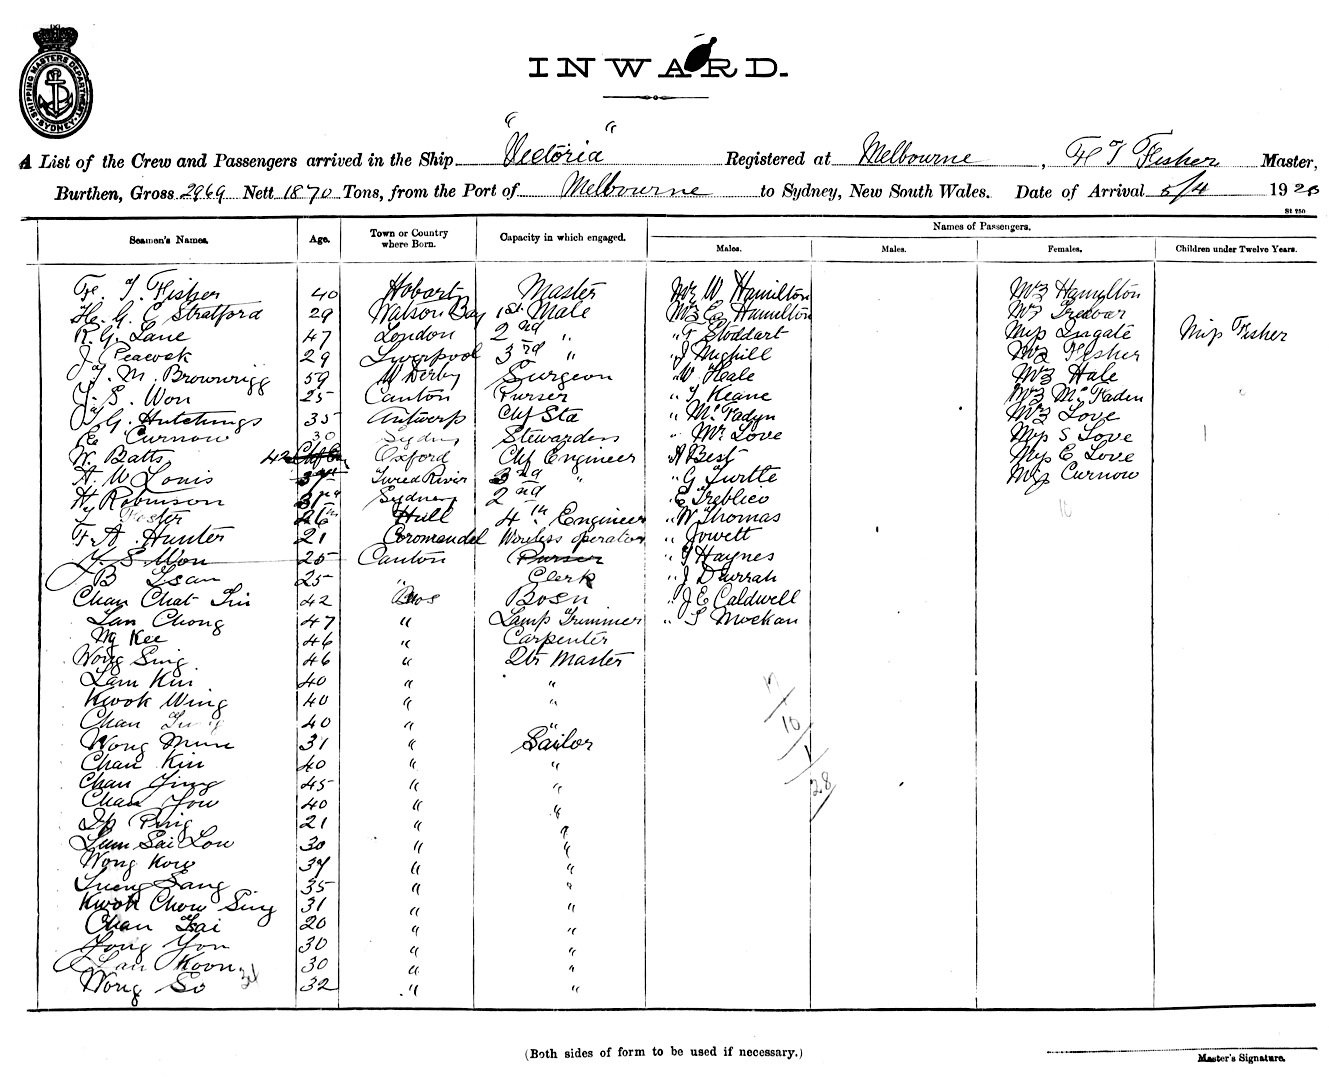 SHIPPING MASTERS DEPARTMENT SYDNEY
INWARD.
A List of the Crew and Passengers arrived in the Ship "Victoria" Registered at Melbourne, F J Fisher Master,
Burthen, Gross 2969 Nett 1870 Tons, from the Port of Melbourne to Sydney, New South Wales. Date of Arrival 5/4 1920
St 250
Names of Passengers.
Seamen's Names. Age. Town or Country where Born. Capacity in which engaged. Males. Males. Females. Children under Twelve Years.
F. J. Fisher 40 Hobart Master Mr W Hamilton Mrs Hamilton
G. C Stratford 29 Watson Bay 1st Mate Hamilton
R. G. Lane 47 London 2nd " " Stoddart Miss Ingate Miss Fisher
J Peacock 29 Liverpool 3rd " " J Mrs Fisher
J. M. Brownrigg 59 W Derby Surgeon " W Heale Mrs Hale
Y. S. Won 25 Canton Purser " J Keane Mrs McFaden
G. Hutchings 35 Antwerp Chf Std " McFadyn Mrs Love
E. Curnow 30 Sydney Stewardess " Mr Love Miss S Love 1
W. Batts 42 Oxford Chf Engineer " A Best Miss E Love
A. W Louis Tweed River " G Turtle Miss Curnow
H Robinson Sydney 2nd " E Treblico
Foster 26 Hull 4th Engineer " W Thomas 10
F. A. Hunter 21 Coromandel Wireless operator " Jowett
Y. S Won 25 Canton Purser " Haynes
B Tsan 25 " Clerk " J Durrah
Chan Chat Tin 42 Bosn " J E Caldwell
Lan Chong 47 " Lamp Trimmer " S Mockan
Ng Kee 46 " Carpenter
Wong Sing 46 " Qtr Master
Lam Kin 40 " "
Kwok Wing 40 " "
Chan 40 " "
Wong Mun 31 " Sailor
Chan Kin 40 " "
Chan Jing 45 " "
Chan You 40 " "
Ip Ping 21 " "
Lum Sai Lou 30 " "
Wong Kow 37 " "
Lueng Sang 35 " "
Kwok Chow Sing 31 " "
Chan Tai 20 " "
Yong You 30 " "
Lan Koon 30 " "
Wong So 32 " "
17
10
1
28
(Both sides of form to be used if necessary.)
Master's Signature.